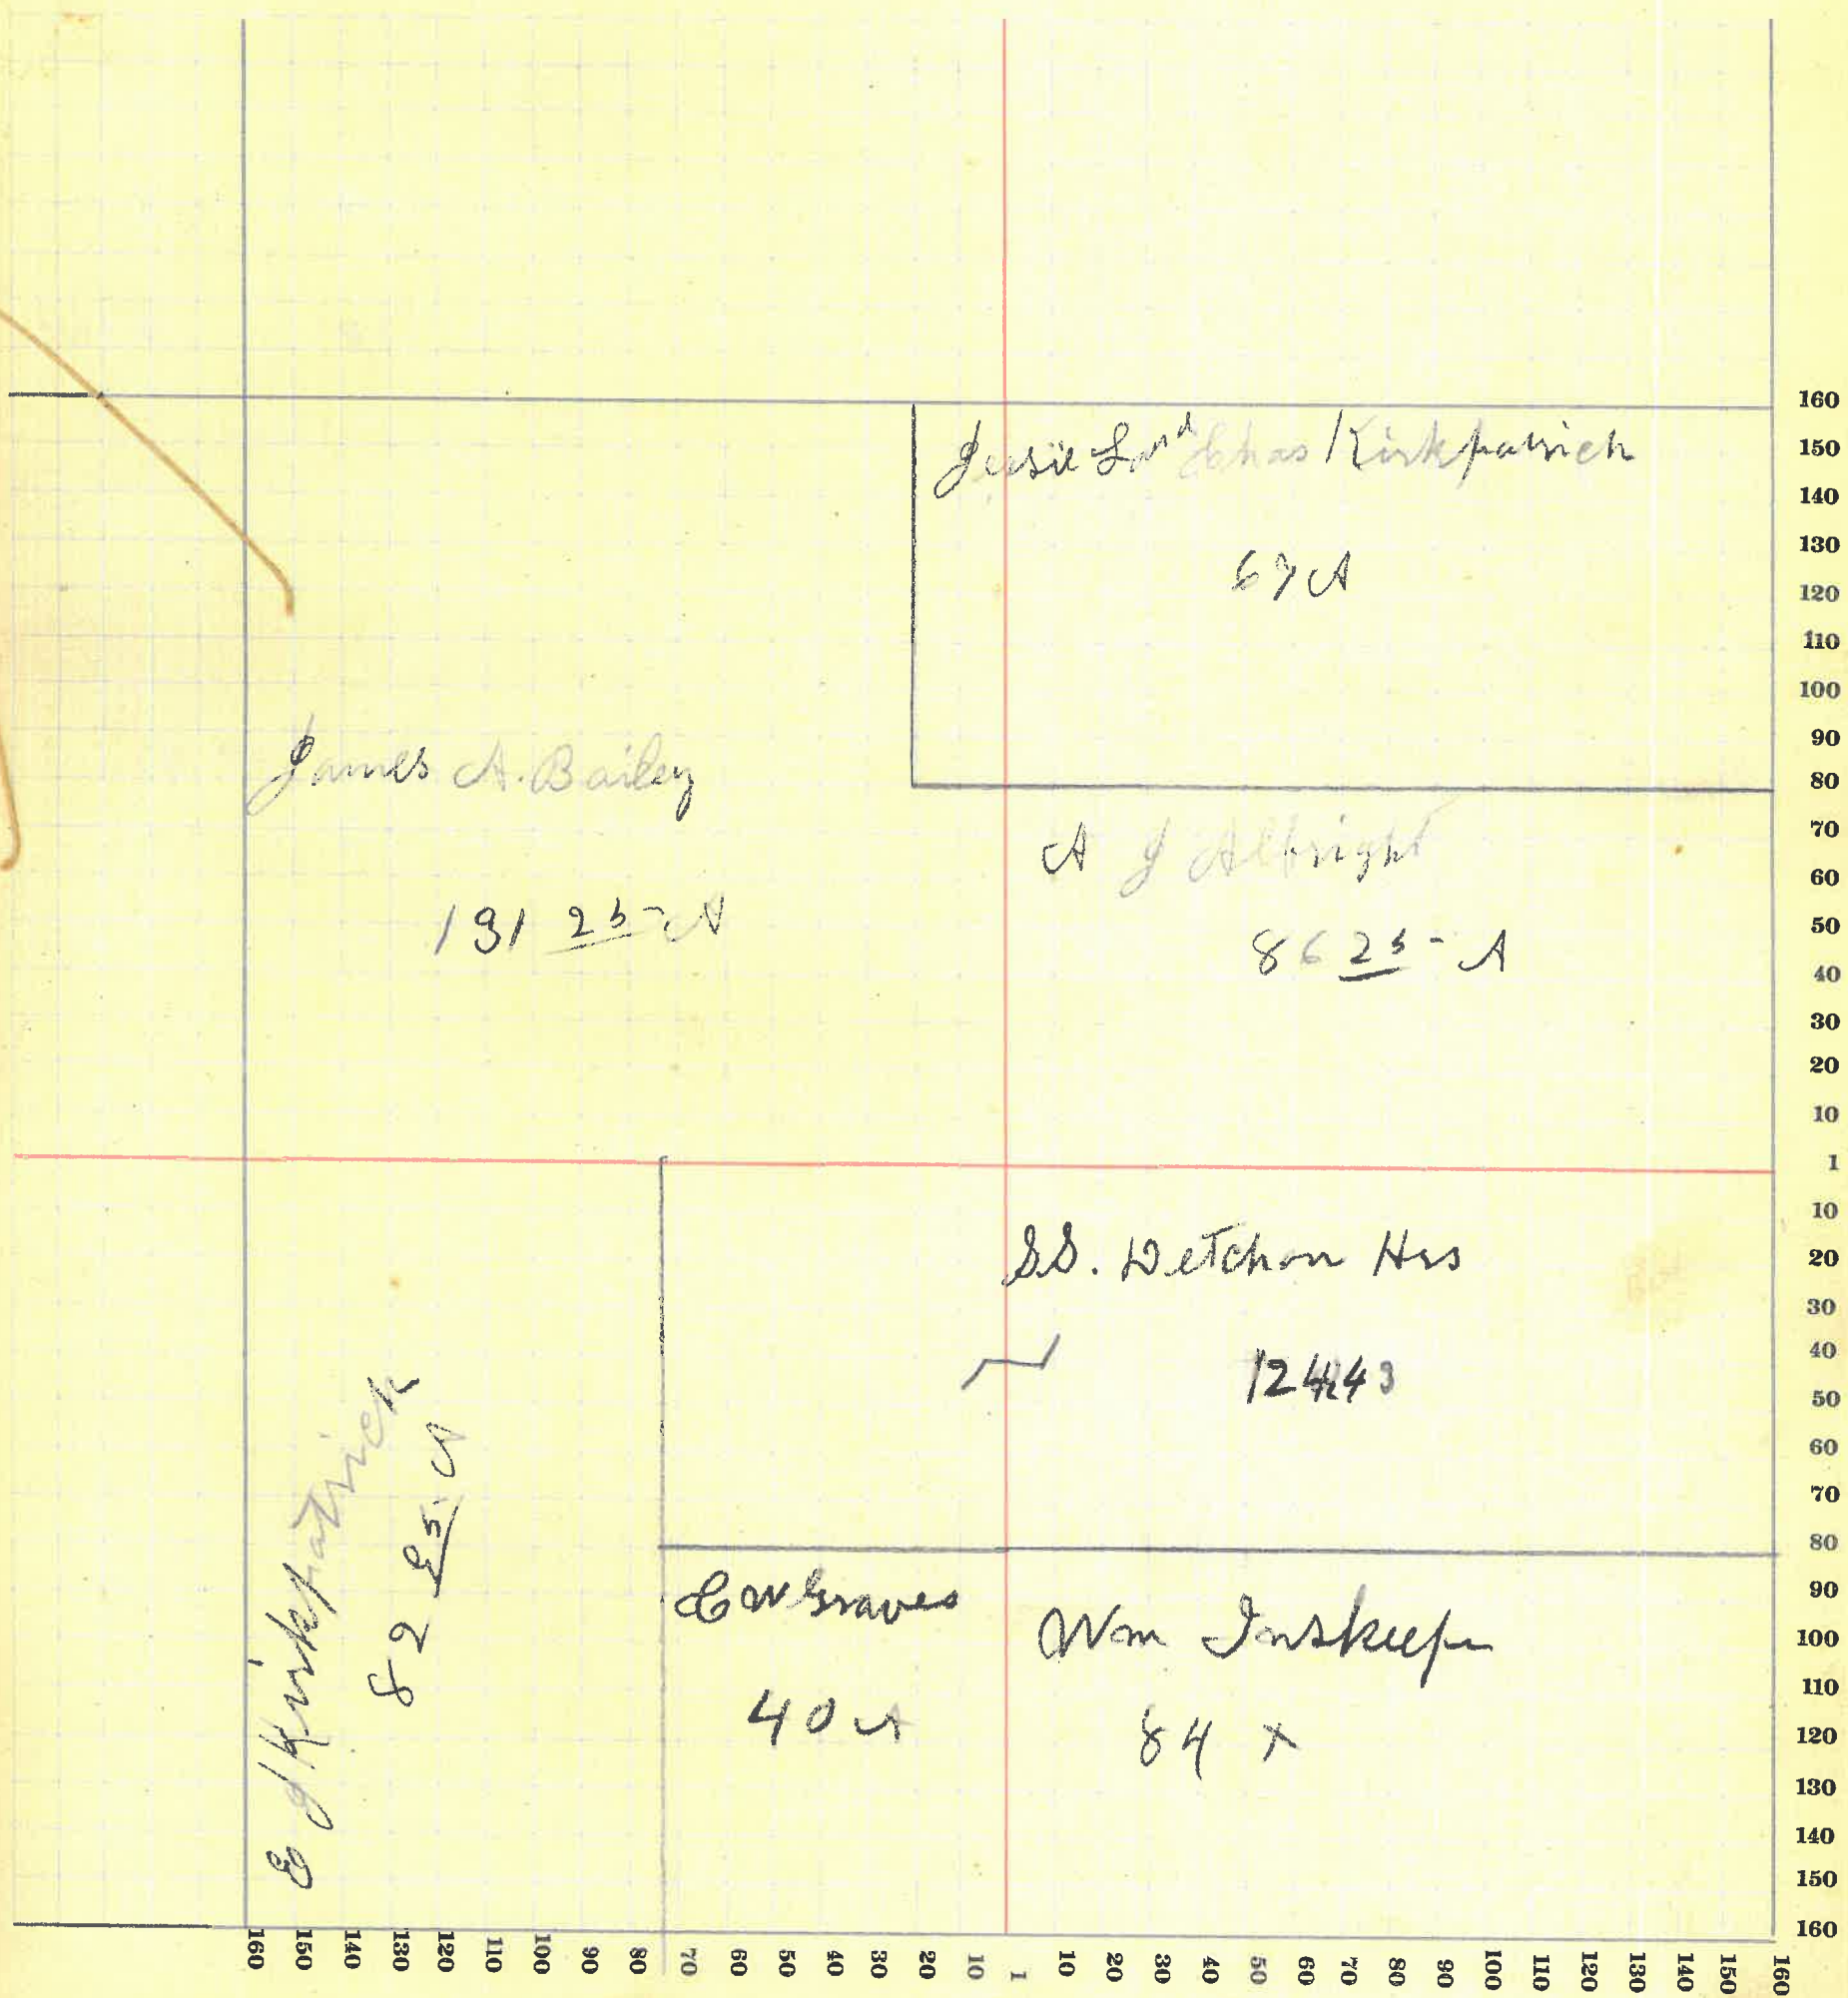 Jessie L and Chas Kirkpatrick
69 A
James A. Bailey
131 25 A
A J Albright
86 25 A
S.S. Detchon Hrs
124.43
E J Kirkpatrick
82 25 A
C W Graves
40 A
Wm Inskeep
84 A
160
150
140
130
120
110
100
90
80
70
60
50
40
30
20
10
1
10
20
30
40
50
60
70
80
90
100
110
120
130
140
150
160
160 150 140 130 120 110 100 90 80 70 60 50 40 30 20 10 1 10 20 30 40 50 60 70 80 90 100 110 120 130 140 150 160